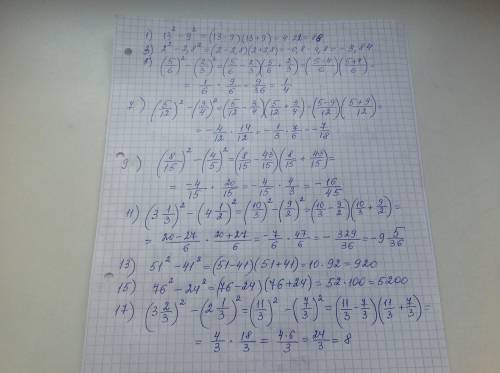 1) 13² - 9² = (13-9)(13+9) = 4·22 = 18
3) 2² - 2,8² = (2-2,8)(2+2,8) = -0,8·4,8 = -3,84
(5/6)² - (2/3)² = (5/6 - 2/3)(5/6 + 2/3) = (5-4/6)(5+4/6) =
= 1/6 · 9/6 = 9/36 = 1/4
7) (5/12)² - (3/4)² = (5/12 - 3/4)(5/12 + 3/4) = (5-9/12)(5+9/12) =
= -4/12 · 14/12 = -1/3 · 7/6 = -7/18
9) (8/15)² - (4/5)² = (8/15 - 43/15)(8/15 + 43/15) =
= -4/15 · 20/15 = -4/15 · 4/3 = -16/45
11) (3 1/3)² - (4 1/2)² = (10/3)² - (9/2)² = (10/3 - 9/2)(10/3 + 9/2) =
= 20-27/6 · 20+27/6 = -7/6 · 47/6 = -329/36 = -9 5/36
13) 51² - 41² = (51-41)(51+41) = 10·92 = 920
15) 76² - 24² = (76-24)(76+24) = 52·100 = 5200
17) (3 2/3)² - (2 1/3)² = (11/3)² - (7/3)² = (11/3 - 7/3)(11/3 + 7/3) =
= 4/3 · 18/3 = 4·6/3 = 24/3 = 8